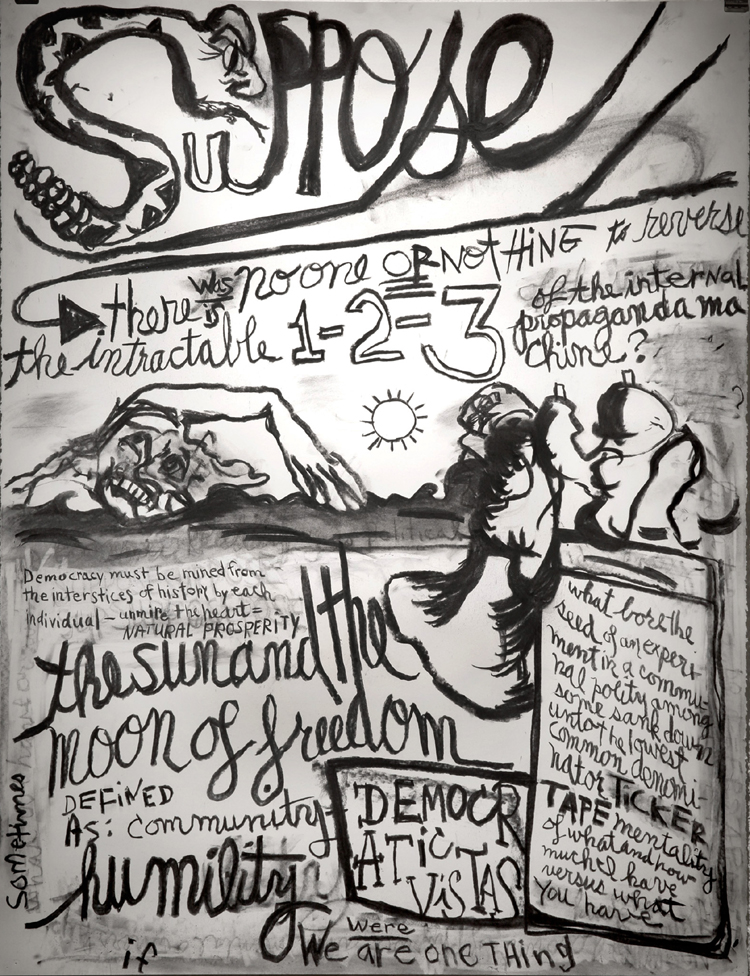 Suppose
there was is no one OR NOtHiNG to reverse
the intractable 1-2-3 of the internal
propaganda ma
chine?
Democracy must be mined from
the interstices of history by each
individual – unmire the heart =
NATURAL PROSPERITY
the sun and the
moon of freedom
DEFINED
As: community
humility
Sometimes
DEMOCR
ATiC
ViSTAS
what bore the
seed of an experi-
ment in a commu-
nal polity among
some sank down
unto the lowest
common denomi-
nator TICKER
TAPE mentality
of what and how
much I have
versus what
you have
if We were are one THing